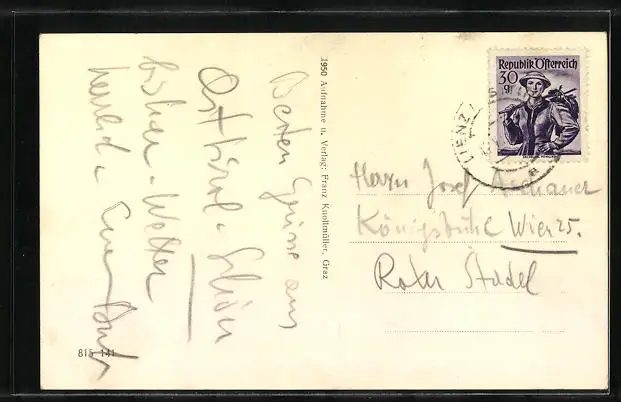 Besten Grüsse aus
Osttirol. Schön
bisher. Wetter
herrlich. Euer
1950 Aufnahme u. Verlag: Franz Knollmüller, Graz
815 141
Republik Österreich
30
g
LIENZ
Herrn Josef Aschauer
Wien 25.
Roter Stadel